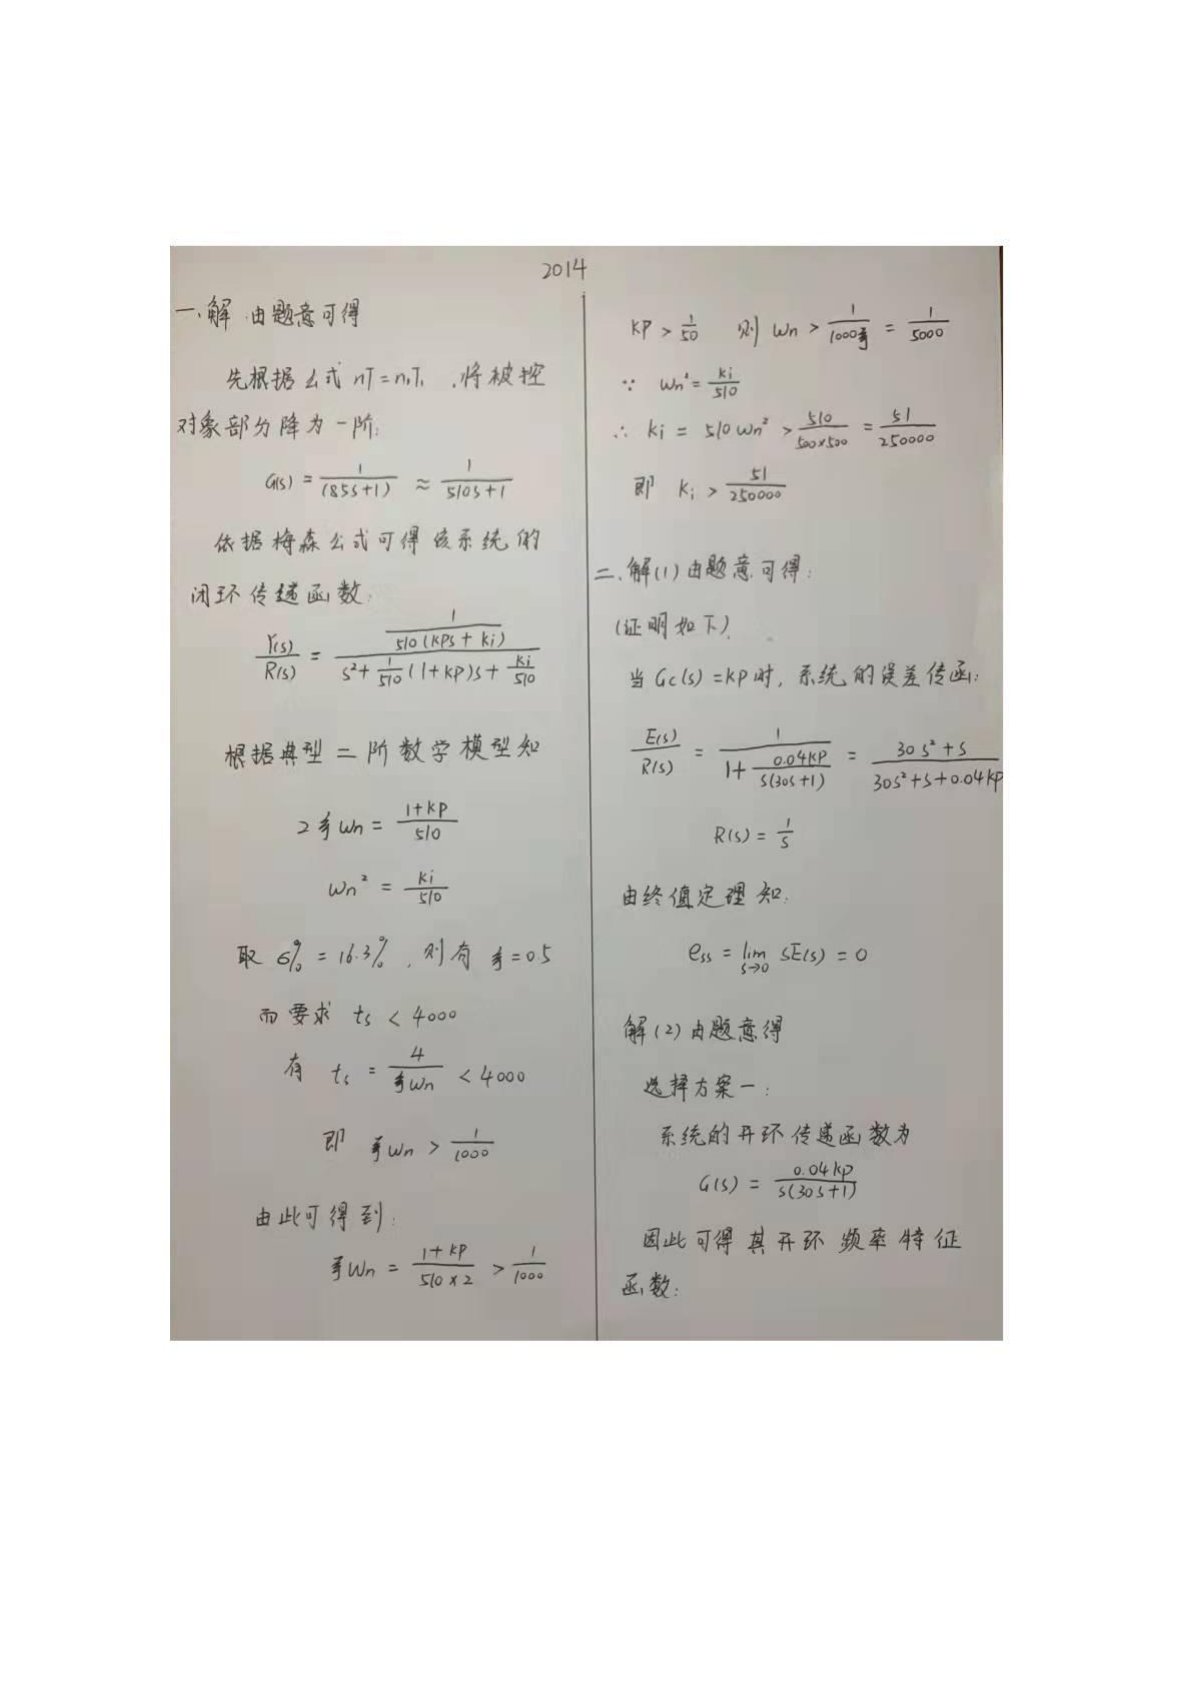 2014
一、解 由题意可得
先根据公式 nT=n₁T₁ ,将被控
对象部分降为一阶:
G(s) = 1/(85s+1) ≈ 1/(510s+1)
依据梅森公式可得该系统的
闭环传递函数:
Y(s)/R(s) = (1/510(kps + ki))/(s²+ 1/510(1+kp)s+ ki/510)
根据典型二阶数学模型知
2ξωn = (1+kp)/510
ωn² = ki/510
取 σ% = 16.3%, 则有 ξ=0.5
而要求 ts < 4000
有 ts = 4/(ξωn) < 4000
即 ξωn > 1/1000
由此可得到:
ξωn = (1+kp)/(510×2) > 1/1000
kp > 1/50 则 ωn > 1/(1000ξ) = 1/5000
∵ ωn² = ki/510
∴ ki = 510ωn² > 510/(500×500) = 51/250000
即 ki > 51/250000
二、解(1)由题意可得:
(证明如下)
当 Gc(s) =kp时, 系统的误差传函:
E(s)/R(s) = 1/(1+ 0.04kp/(s(30s+1))) = (30s²+s)/(30s²+s+0.04kp)
R(s) = 1/s
由终值定理知:
ess = lim s→0 sE(s) = 0
解(2)由题意得
选择方案一:
系统的开环传递函数为
G(s) = 0.04kp/(s(30s+1))
因此可得其开环频率特征
函数: